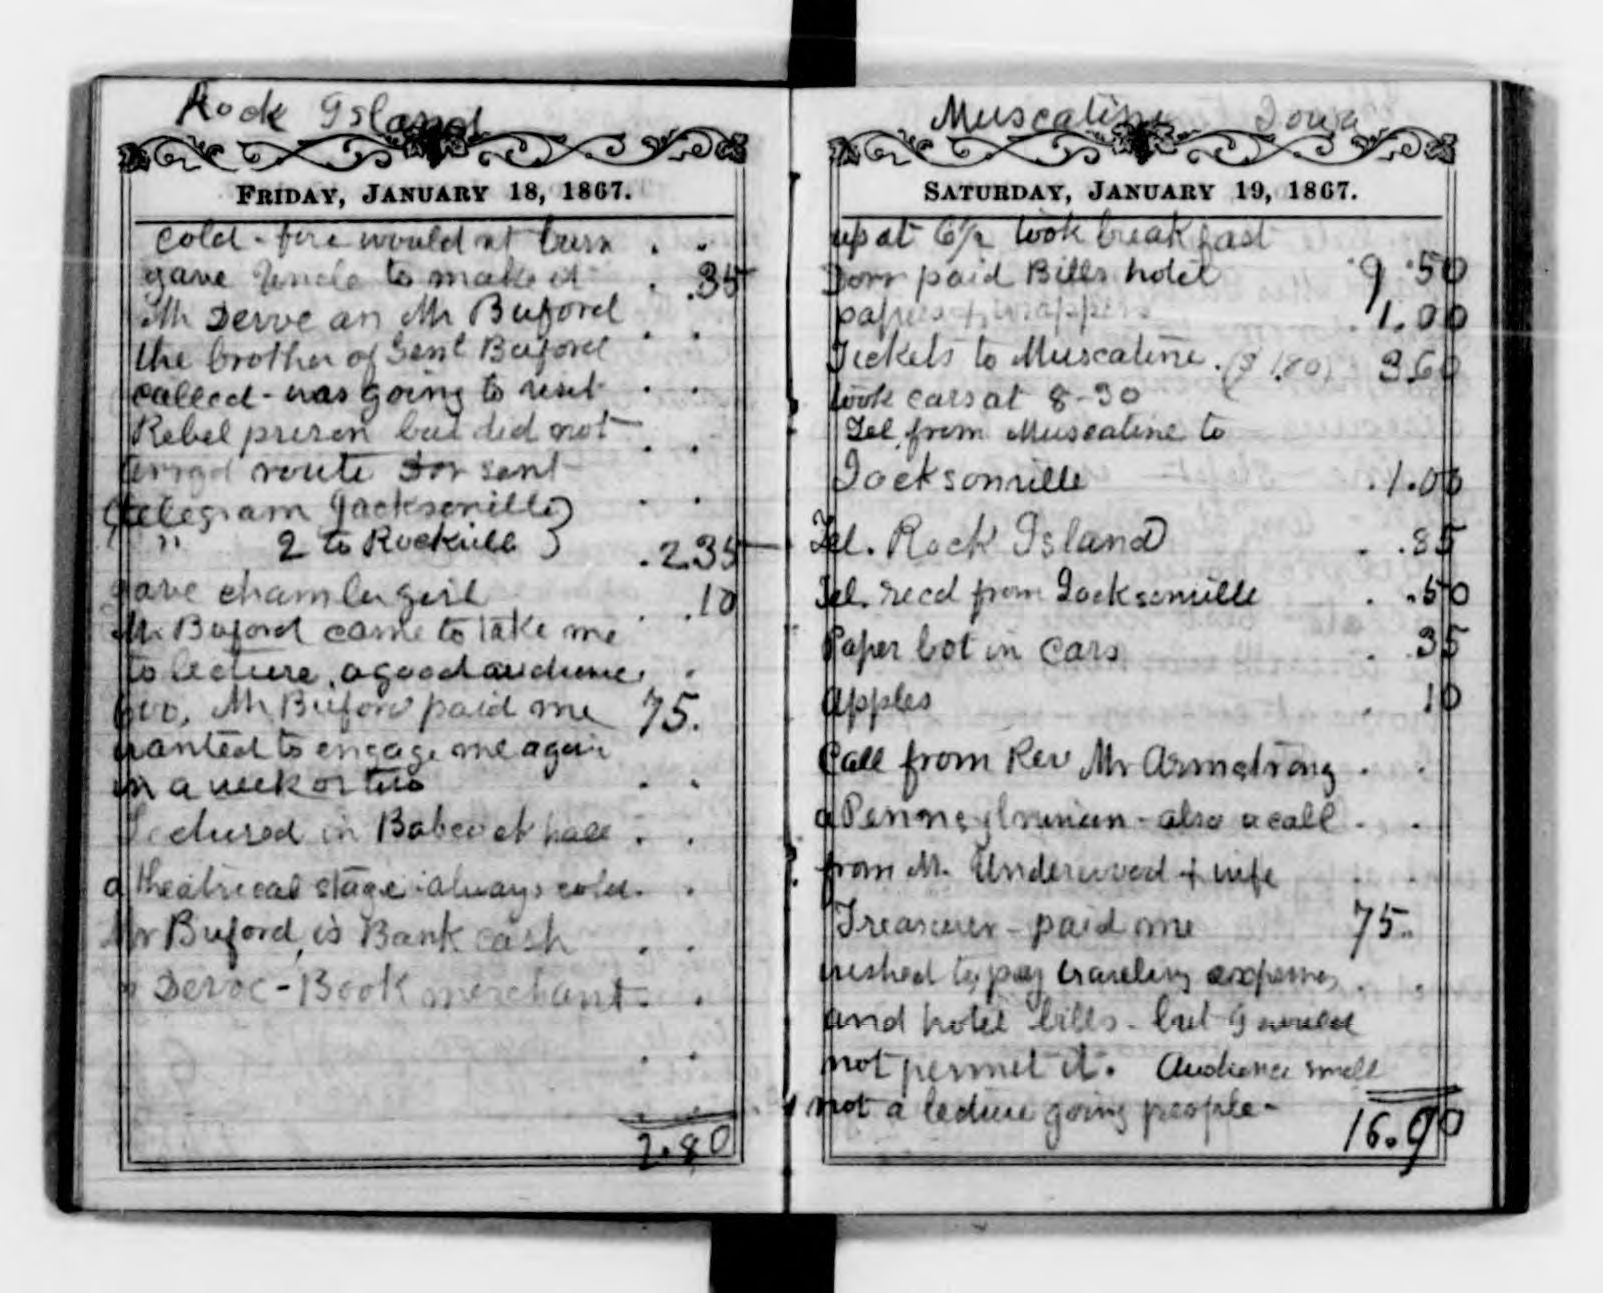 Rock Island
FRIDAY, JANUARY 18, 1867.
cold - fire would nt burn
gave Uncle to make it .35
Mr Derve an Mr Buford
the brother of Genl Buford
called - was going to visit
Rebel prison but did not
route Dor sent
telegram Jacksonville }
" 2 to Rockville } .2.35
gave chambergirl .10
Mr Buford came to take me
to lecture, a good audience
600, Mr Buford paid me 75.
wanted to engage me again
in a week or two
Lectured in Babcock hall
a theatrical stage - always cold.
Mr Buford, is Bank cash
" Deroc - Book merchant
2.80
Muscatine Iowa
SATURDAY, JANUARY 19, 1867.
up at 6 1/2 took breakfast
Dorr paid Bills hotel 9.50
papers & wrappers 1.00
Tickets to Muscatine. ($ 1.80) 3.60
took cars at 8-30
Tel. from Muscatine to
Jacksonville .1.00
Tel. Rock Island .85
Tel. recd from Jacksonville .50
Paper bot in cars .35
apples 10
Call from Rev Mr Armstrong
a Pennsylvanian - also a call
from Mr. Underwood & wife
Treasurer - paid me 75.
wished to pay traveling expenses
and hotel bills - but I would
not permit it. Audience small
not a lecture going people -
16.90